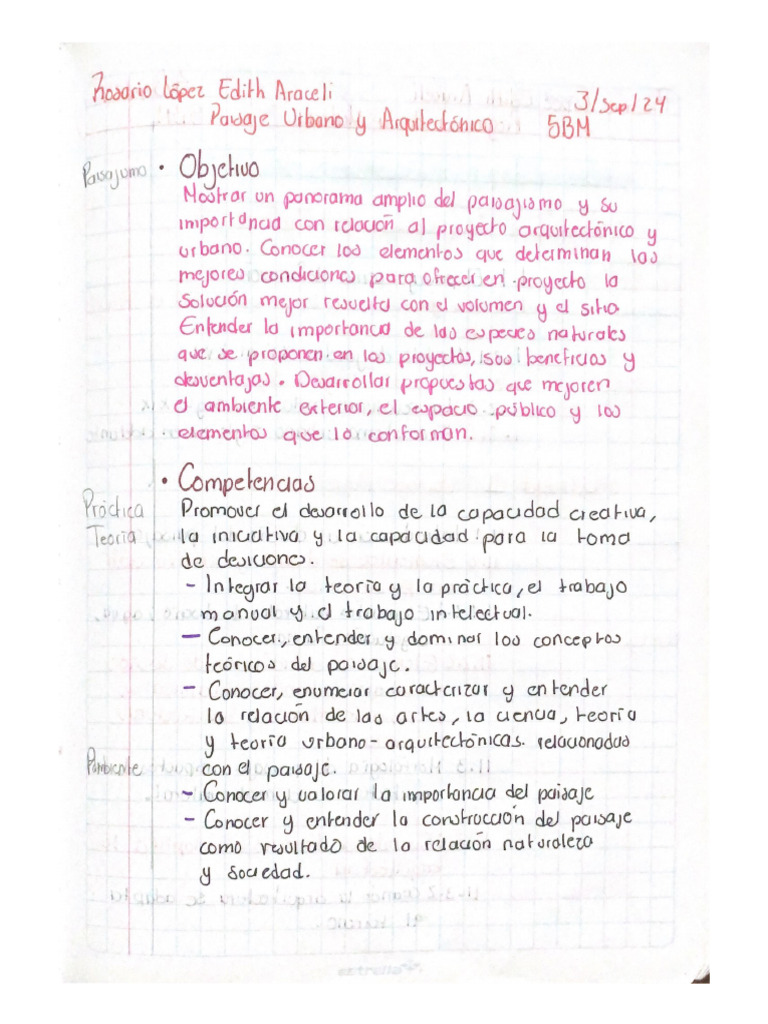 Rosario López Edith Araceli 3/Sep/24
Paisaje Urbano y Arquitectónico 5BM
Paisajismo • Objetivo
Mostrar un panorama amplio del paisajismo y su
importancia con relación al proyecto arquitectónico y
urbano. Conocer los elementos que determinan las
mejores condiciones para ofrecer en proyecto la
solución mejor resuelta con el volumen y el sitio
Entender la importancia de las especies naturales
que se proponen en los proyectos, sus beneficios y
desventajas. Desarrollar propuestas que mejoren
el ambiente exterior, el espacio público y los
elementos que lo conforman.
• Competencias
Práctica Promover el desarrollo de la capacidad creativa,
Teoría la iniciativa y la capacidad para la toma
de desiciones.
- Integrar la teoría y la práctica, el trabajo
manual y el trabajo intelectual.
- Conocer, entender y dominar los conceptos
teóricos del paisaje.
- Conocer, enumerar caractarizar y entender
la relación de las artes, la ciencia, teoría
y teoría urbano-arquitectónicas. relacionadas
con el paisaje.
- Conocer y valorar la importancia del paisaje
- Conocer y entender la construcción del paisaje
como resultado de la relación naturaleza
y sociedad.